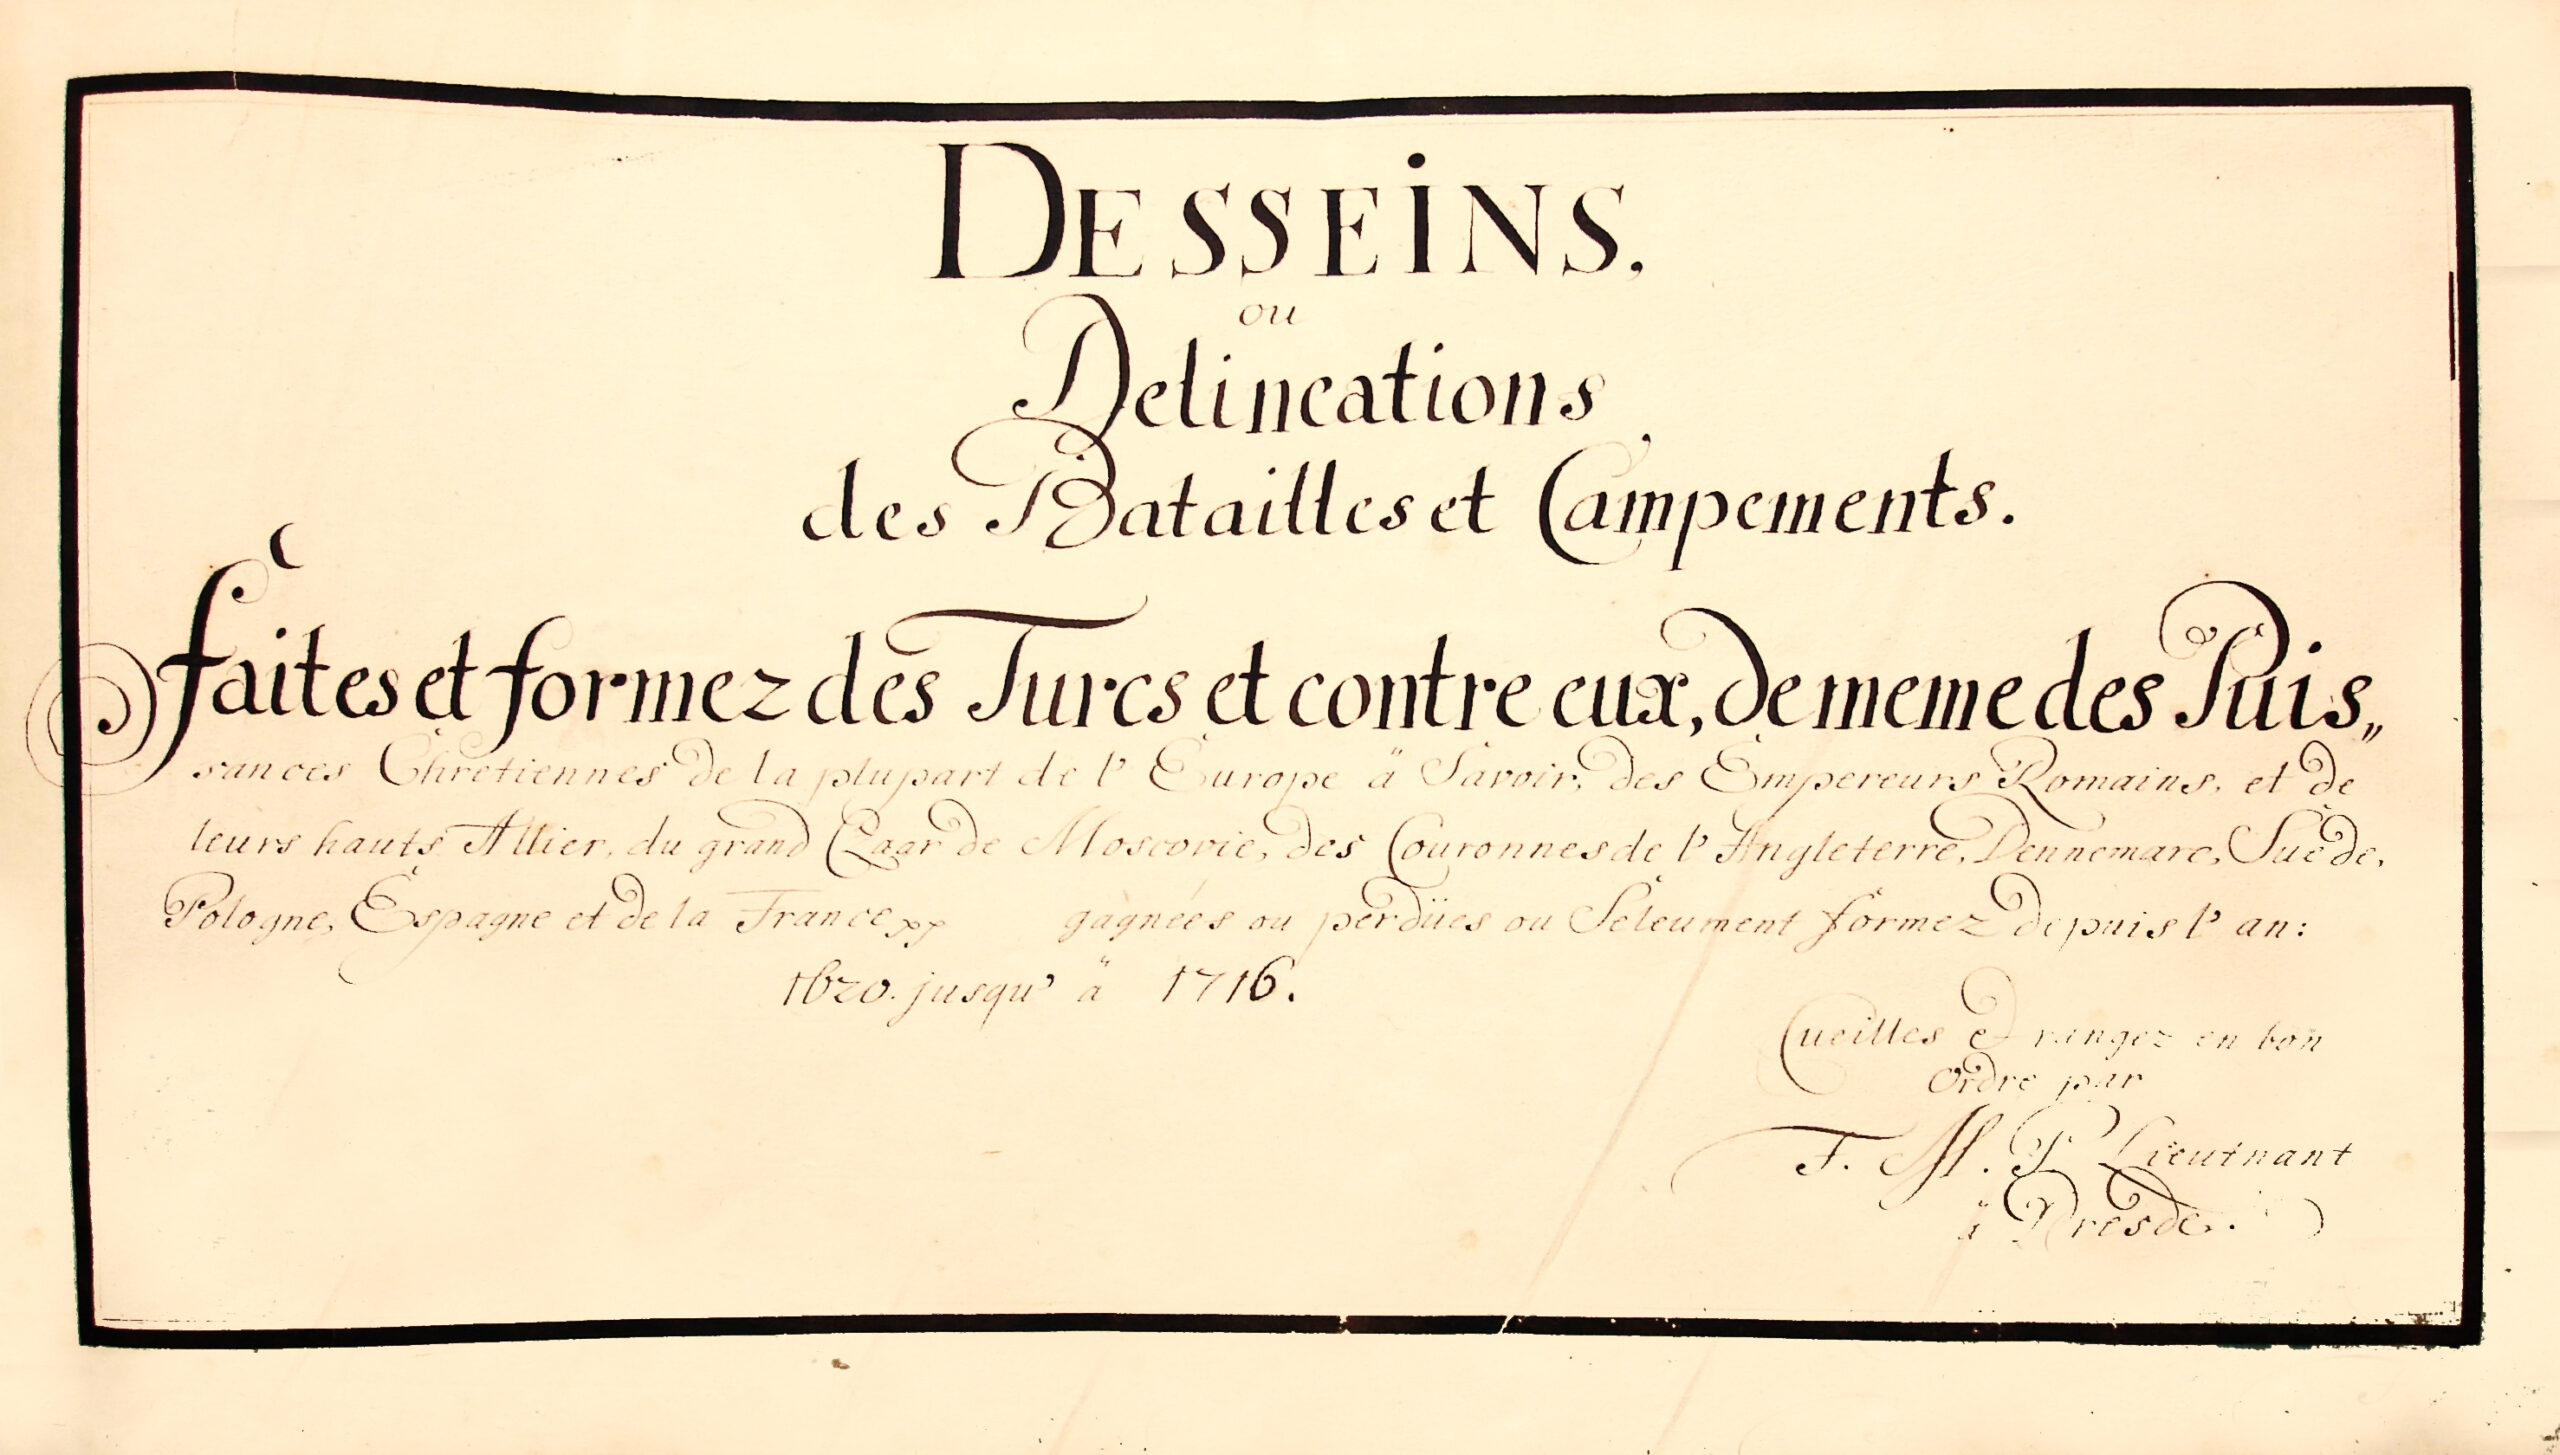 DESSEiNS,
ou
Delineations
des Batailles et Campements.
faites et formez des Turcs et contre eux, de meme des Puis„
sances Chretiennes de la plupart de l' Europe ä Savoir, des Empereurs Romains, et de
leurs hauts Allier, du grand Czaar de Moscovie, des Couronnes de l' Angleterre, Dennemarc, Suede,
Pologne, Espagne et de la France gagnées ou perdües ou Seleument formez depuis l' an:
1620. jusqu' ä 1716.
Cueilles & rangez en bon
Ordre par
F. M. P Lieutnant
ä Dresde.